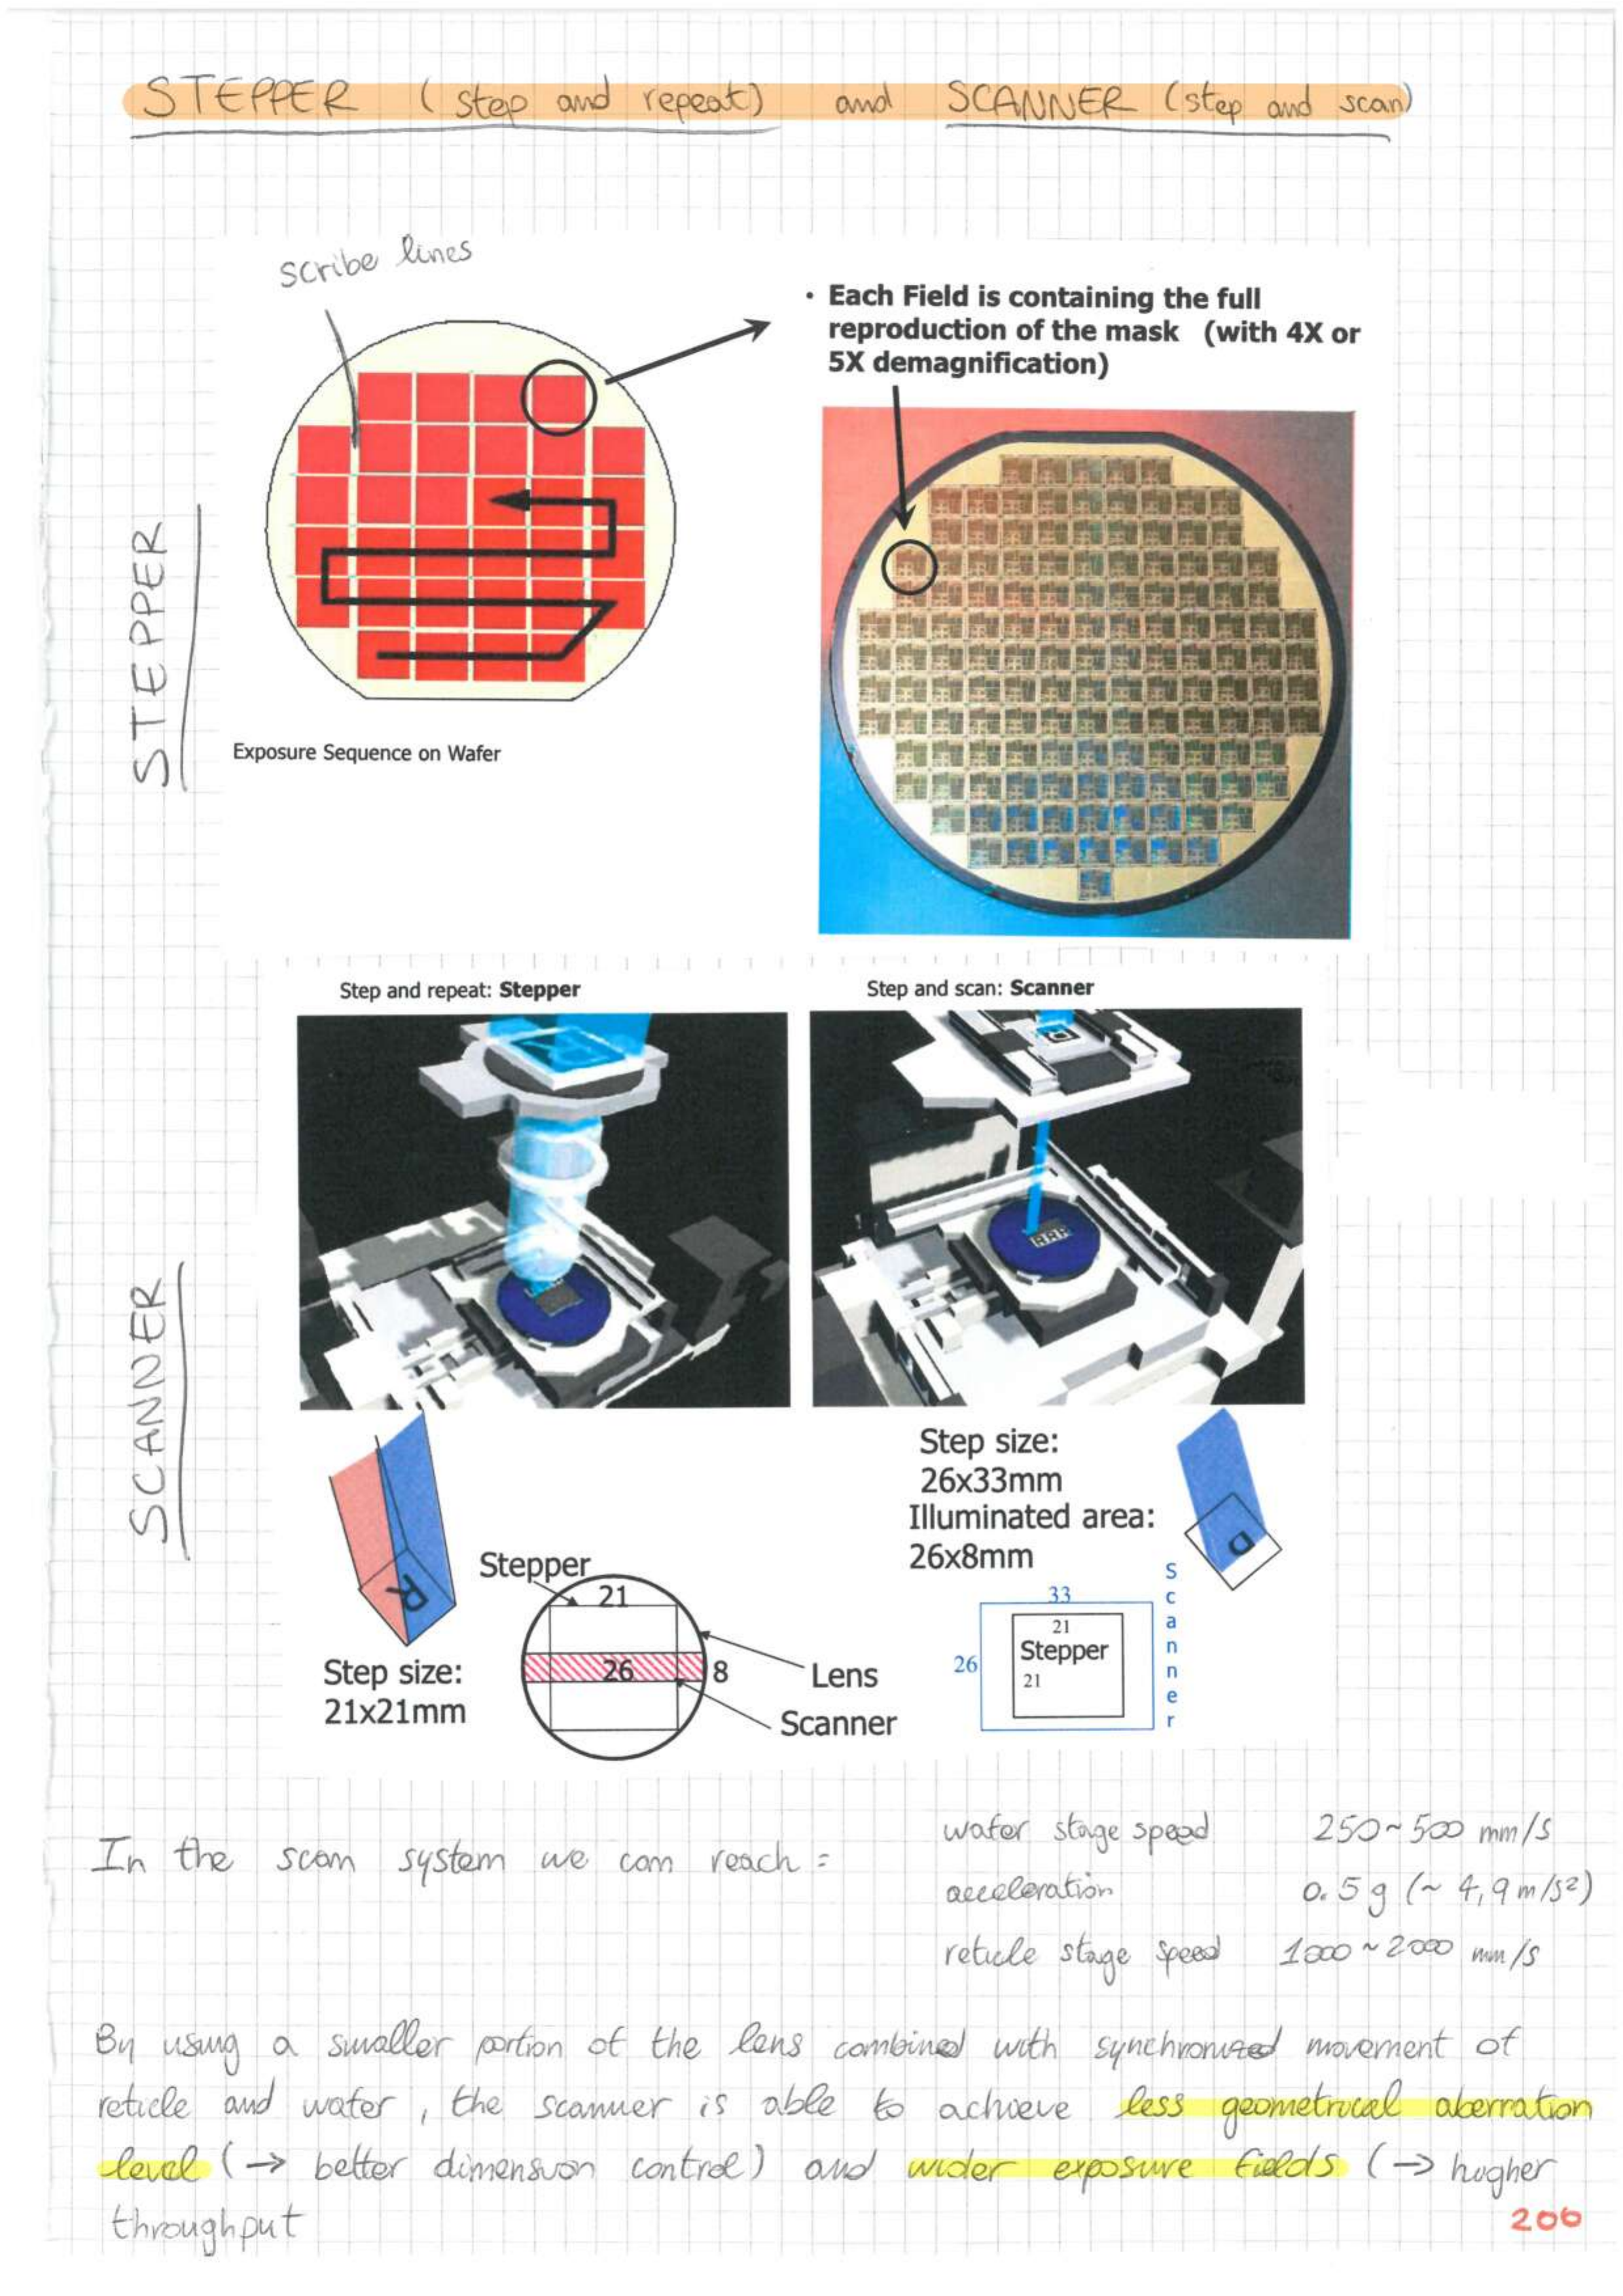 STEPPER (step and repeat) and SCANNER (step and scan)
scribe lines
• Each Field is containing the full
reproduction of the mask (with 4X or
5X demagnification)
STEPPER
Exposure Sequence on Wafer
Step and repeat: Stepper
Step and scan: Scanner
SCANNER
R
Step size:
21x21mm
Stepper
21
26
8
Lens
Scanner
Step size:
26x33mm
Illuminated area:
26x8mm
33
26
21
Stepper
21
Scanner
In the scan system we can reach:
wafer stage speed 250~500 mm/s
acceleration 0.5 g (~ 4,9 m/s²)
reticle stage speed 1000~2000 mm/s
By using a smaller portion of the lens combined with synchronized movement of
reticle and wafer, the scanner is able to achieve less geometrical aberration
level (→ better dimension control) and wider exposure fields (→ higher
throughput
206